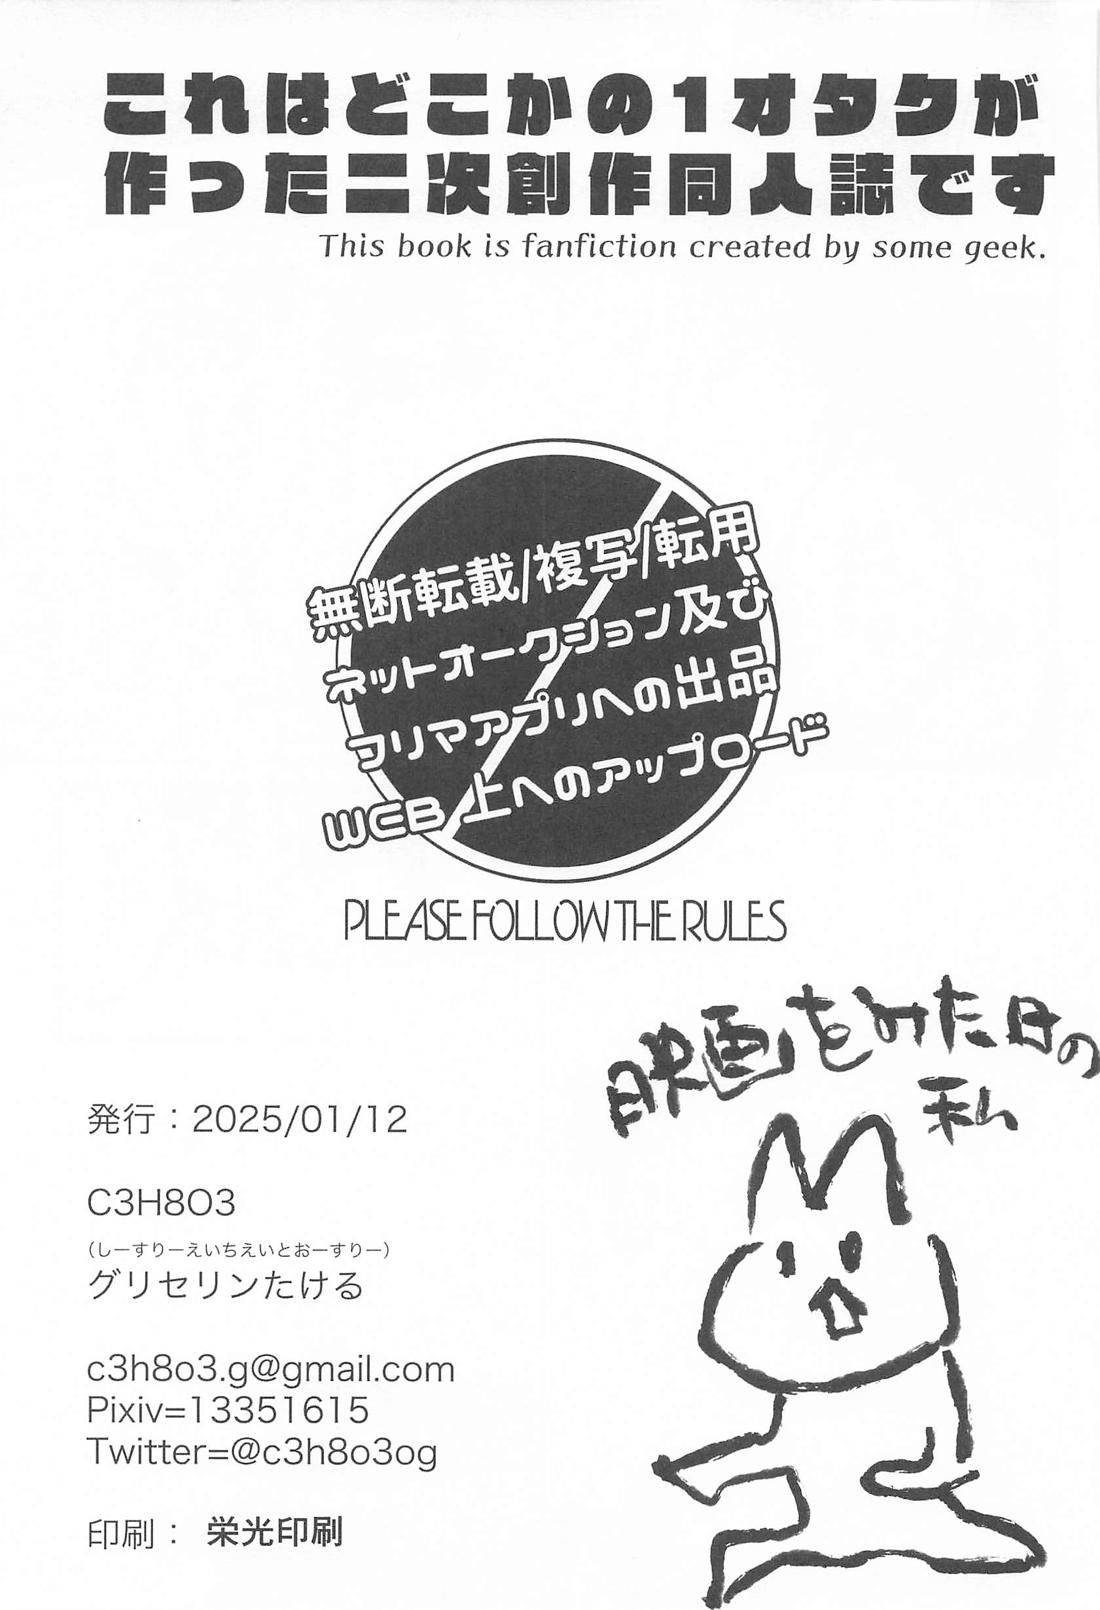 これはどこかの1オタクが
作った二次創作同人誌です
This book is fanfiction created by some geek.
無断転載/複写/転用
ネットオークション及び
フリマアプリへの出品
WEB上へのアップロード
PLEASE FOLLOW THE RULES
映画をみた日の
私
発行：2025/01/12
C3H8O3
（しーすりーえいちえいとおーすりー）
グリセリンたける
c3h8o3.g@gmail.com
Pixiv=13351615
Twitter=@c3h8o3og
印刷： 栄光印刷